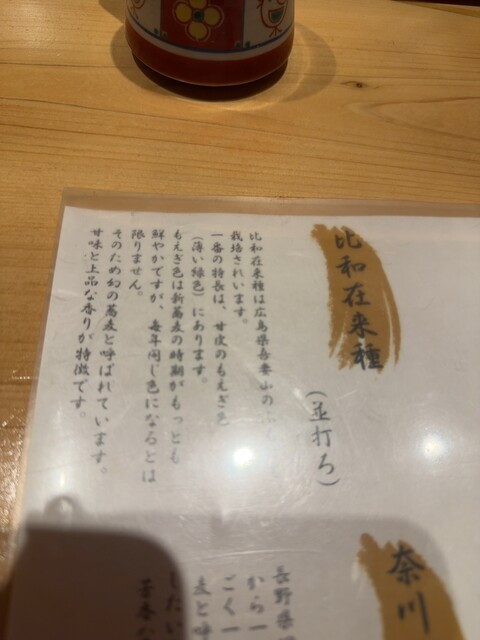 比和在来種
(並打ち)
比和在来種は広島県吾妻山の
栽培されいます。
一番の特長は、甘皮のもえぎ色
(薄い緑色)にあります。
もえぎ色は新蕎麦の時期がもっとも
鮮やかですが、毎年同じ色になるとは
限りません。
そのため幻の蕎麦と呼ばれています。
甘味と上品な香りが特徴です。
奈川
長野県
から一
ごく一
麦と呼
したい